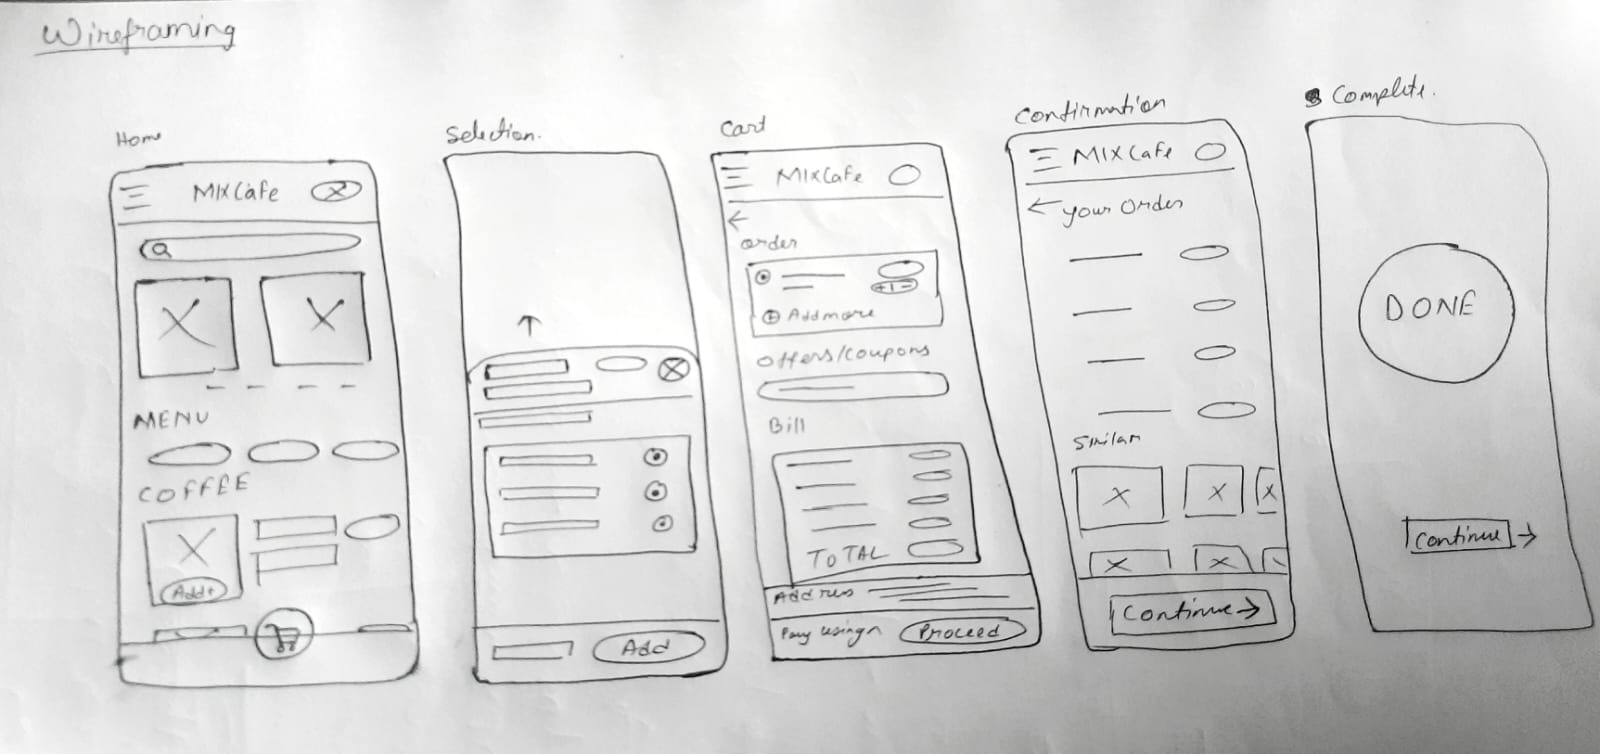 Wireframing
Home
MIXCafe
MENU
COFFEE
Add+
Selection.
Add
Cart
MIXCafe
order
+1-
Add more
offers/coupons
Bill
ToTAL
Address
Pay using
Proceed
Confirmation
MIXCafe
← Your Order
Similar
Continue →
Complete.
DONE
Continue →